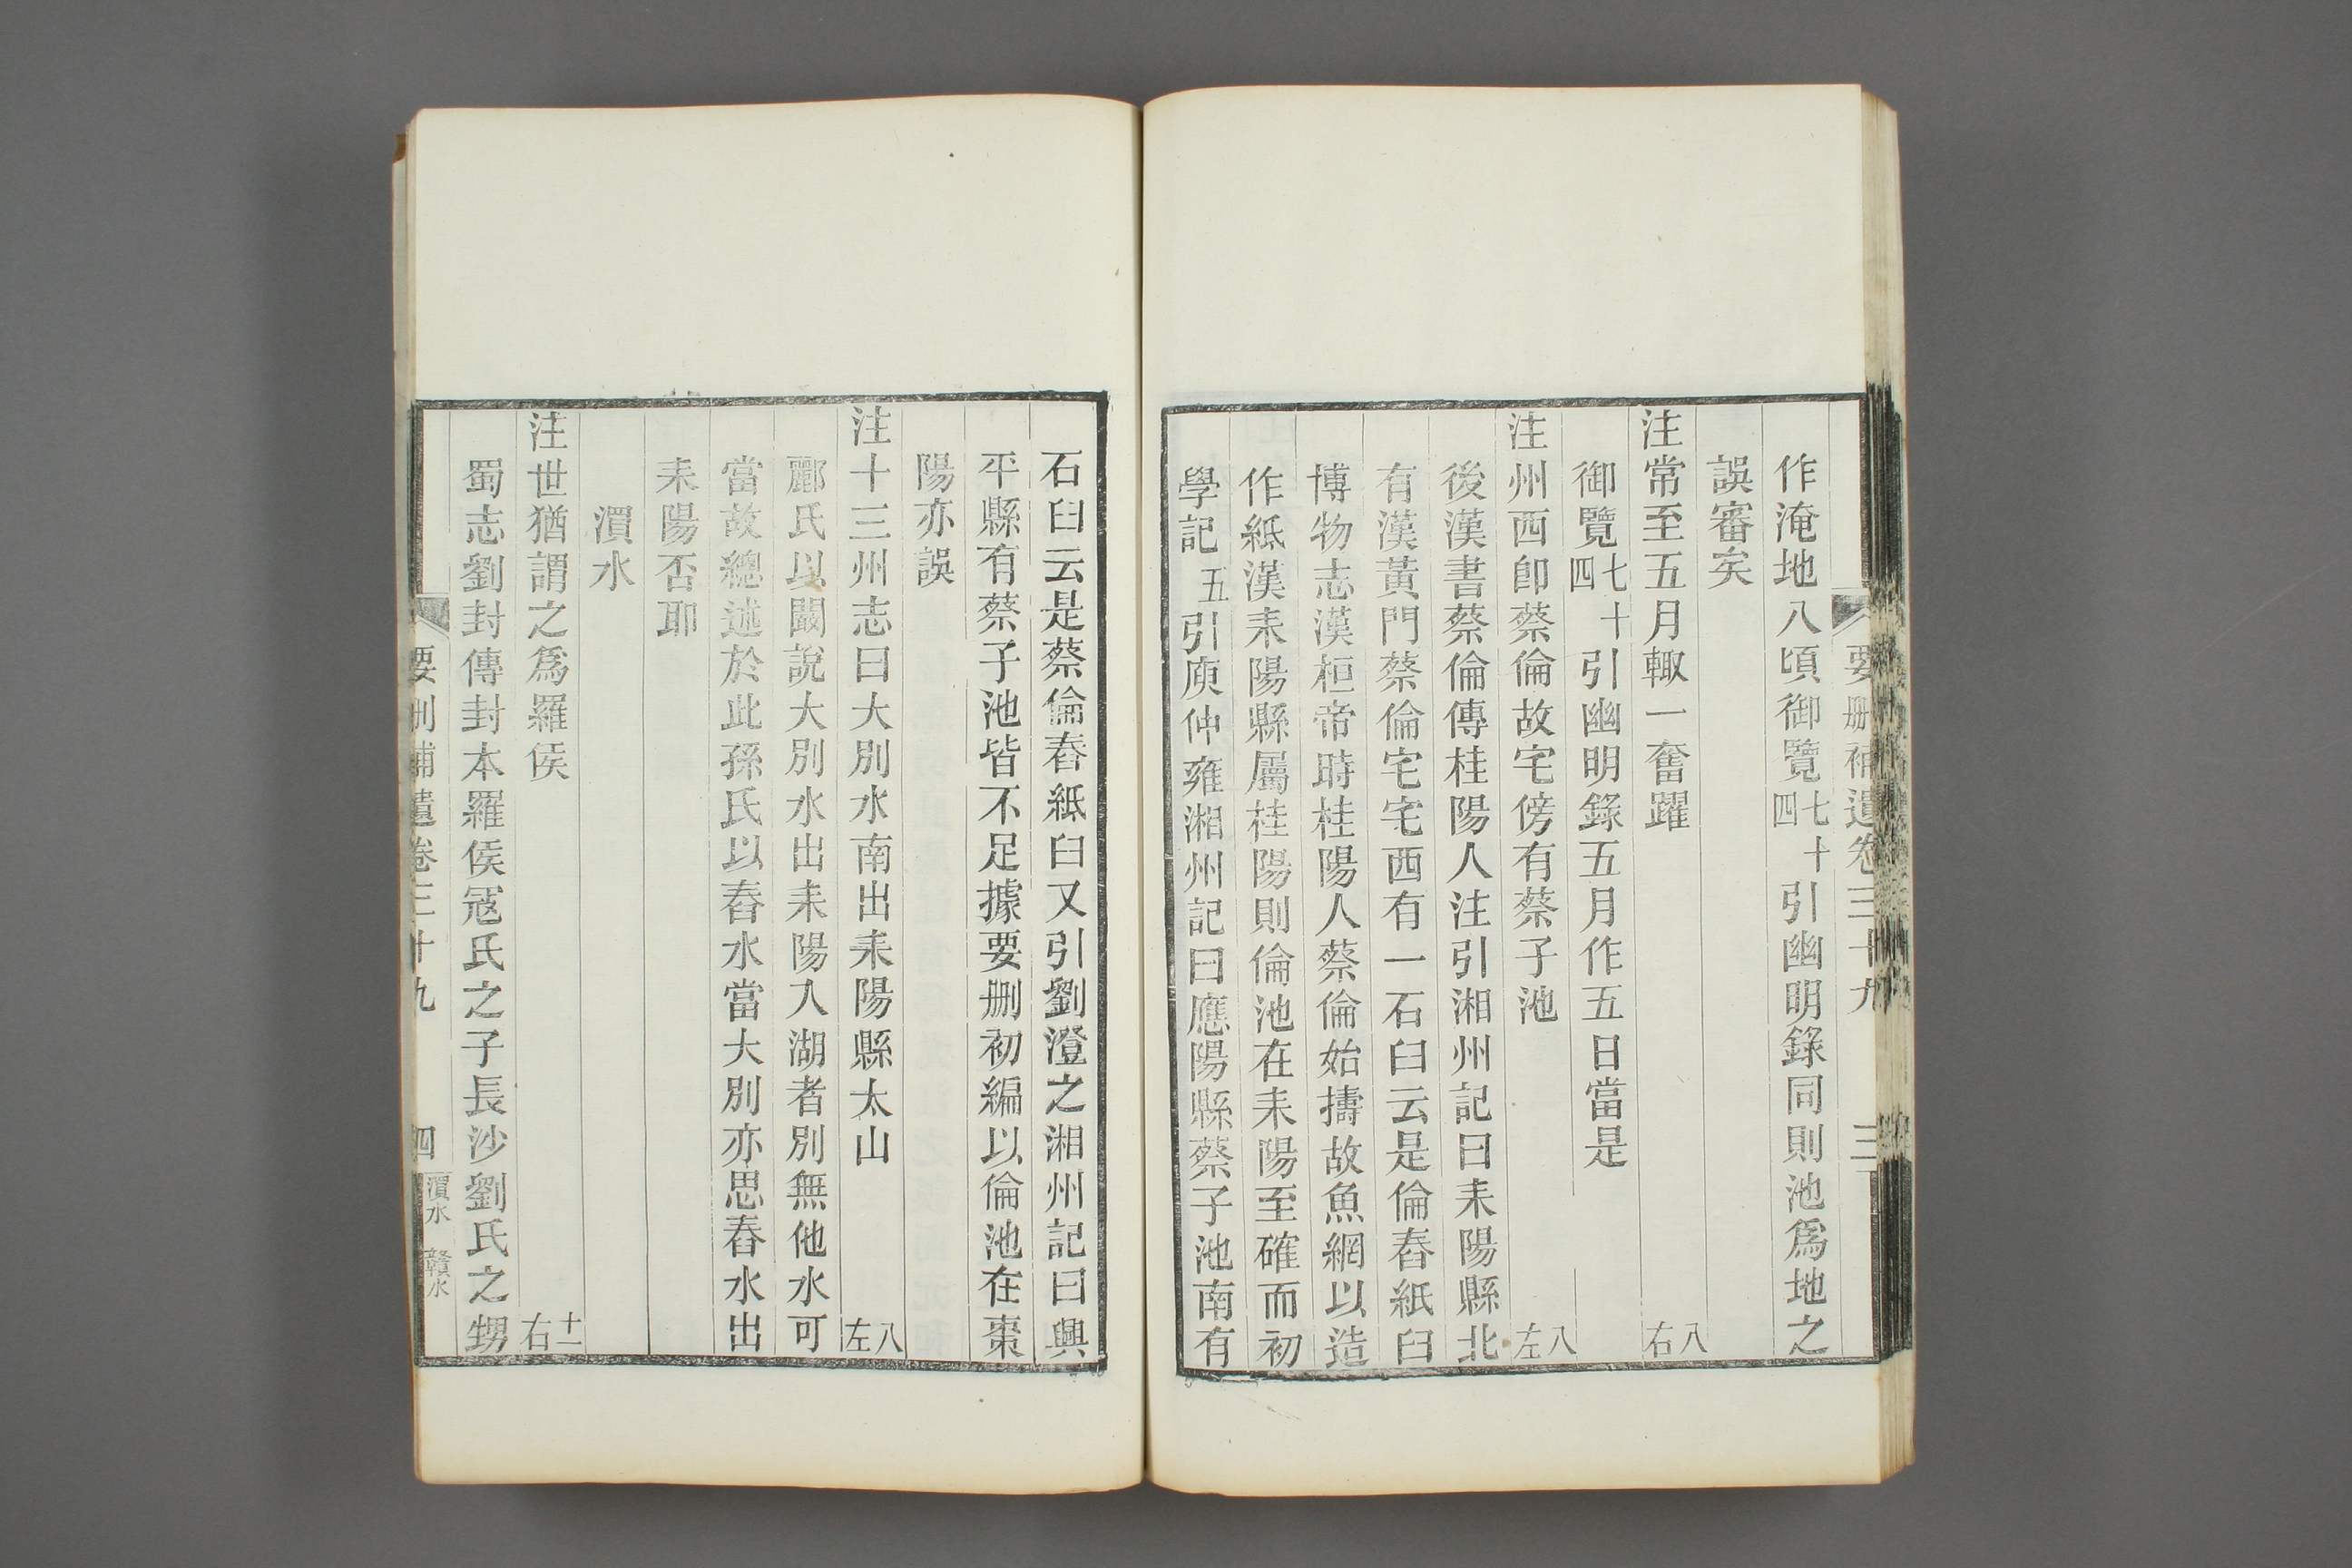 要删補遺卷三十九 三
作淹地八頃御覽七十四引幽明錄同則池爲地之
誤審矣
注常至五月輙一奮躍 八右
御覽七十四引幽明錄五月作五日當是
注州西卽蔡倫故宅傍有蔡子池 八左
後漢書蔡倫傳桂陽人注引湘州記曰耒陽縣北
有漢黃門蔡倫宅宅西有一石臼云是倫舂紙臼
博物志漢桓帝時桂陽人蔡倫始擣故魚網以造
作紙漢耒陽縣屬桂陽則倫池在耒陽至確而初
學記五引庾仲雍湘州記曰應陽縣蔡子池南有
石臼云是蔡倫舂紙臼又引劉澄之湘州記曰興
平縣有蔡子池皆不足據要删初編以倫池在棗
陽亦誤
注十三州志曰大別水南出耒陽縣太山 八左
酈氏以闞說大別水出耒陽入湖者別無他水可
當故總述於此孫氏以舂水當大別亦思舂水出
耒陽否耶
溳水
注世猶謂之爲羅侯 十一右
蜀志劉封傳封本羅侯寇氏之子長沙劉氏之甥
要删補遺卷三十九 四 溳水 贛水